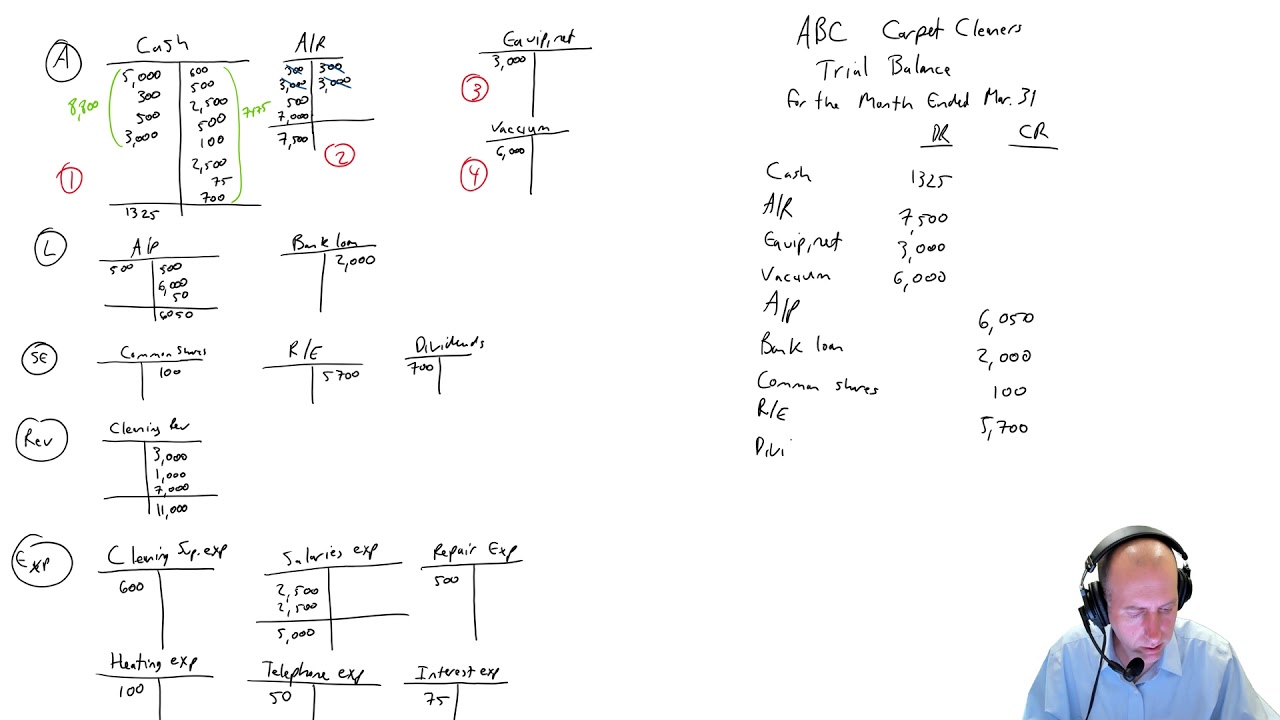 A
Cash
5,000
300
500
3,000
8,800
600
500
2,500
500
100
2,500
75
700
7,475
1
1325
A/R
300 300
3,000 3,000
500
7,000
7,500
2
Equip, net
3,000
3
Vacuum
6,000
4
L
A/P
500 500
6,000
50
6050
Bank loan
2,000
SE
Common shares
100
R/E
5700
Dividends
700
Rev
Cleaning Rev
3,000
1,000
7,000
11,000
Exp
Cleaning Sup. exp
600
Salaries exp
2,500
2,500
5,000
Repair Exp
500
Heating exp
100
Telephone exp
50
Interest exp
75
ABC Carpet Cleaners
Trial Balance
For the Month Ended Mar. 31
DR CR
Cash 1325
A/R 7,500
Equip, net 3,000
Vacuum 6,000
A/P 6,050
Bank loan 2,000
Common shares 100
R/E 5,700
Divi